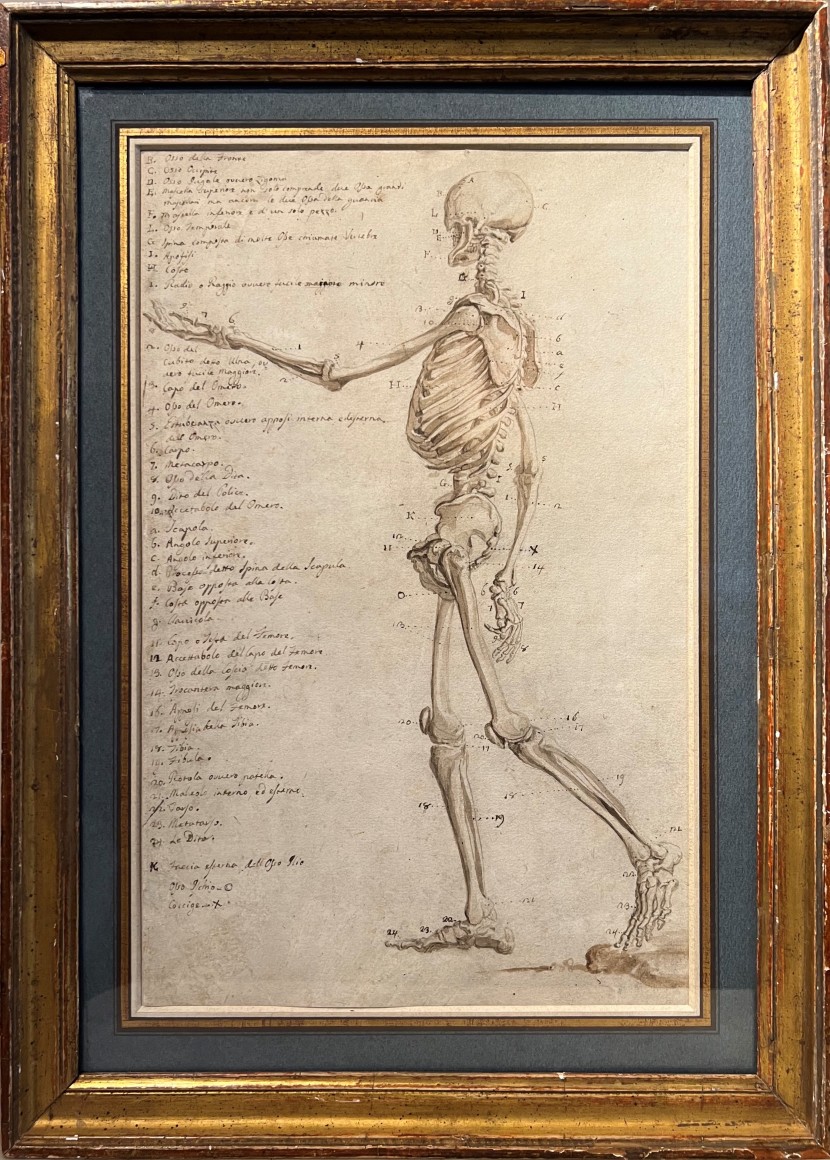 B. Osso della Fronte
C. Osso Occipite
D. Osso Jugale ovvero Zigoma
E. Mascela Superiore non solo comprende due Ossa grandi
ma ancora le due Ossa della guancia
F. Mascella inferiore è d'un solo pezzo.
L. Osso Temporale
G. Spina composta di molte Obe chiamate Vertebre
I. Apofisi
H. Coste
1. Radio o Raggio ovvero fucile minore
2. Osso del
Cubito detto Ulna, ov
vero fucile Maggiore.
3. Capo del Omero.
4. Osso del Omero.
5. ovvero interna ed esterna
del Omero.
6. Carpo.
7. Metacarpo.
8. Ossi delle Dita.
9. Dito del Police.
10. Accetabolo del Omero.
a. Scapola.
b. Angolo Superiore.
c. Angolo inferiore.
d. Processo detto Spina della Scapula
e. Base opposta alla costa.
f. Costa opposta alla Base
g. Clavicola
11. Capo o Testa del Femore.
12. Accettabolo del Capo del Femore
13. Osso della Coscia detto femore.
14. Trocantere maggiore.
16. del Femore.
17. della Tibia.
18. Tibia.
19. Fibula.
20. Rotola ovvero patella.
21. Maleoli interno ed esterne
22. Tarso.
23. Metatarso.
24. Le Dita.
K Faccia esterna dell'Osso Ilio
Osso Ischio - O
Coccige - X
A
B
L
D
E
F
C
G
I
13
10
9
8
7
6
1
4
5
2
b
a
e
f
c
H
H
G
I
5
5
1
2
K
12
11
X
14
O
6
6
7
9
8
13
20
20
16
17
17
18
19
18
19
21
22
22
23
24
24
23
22